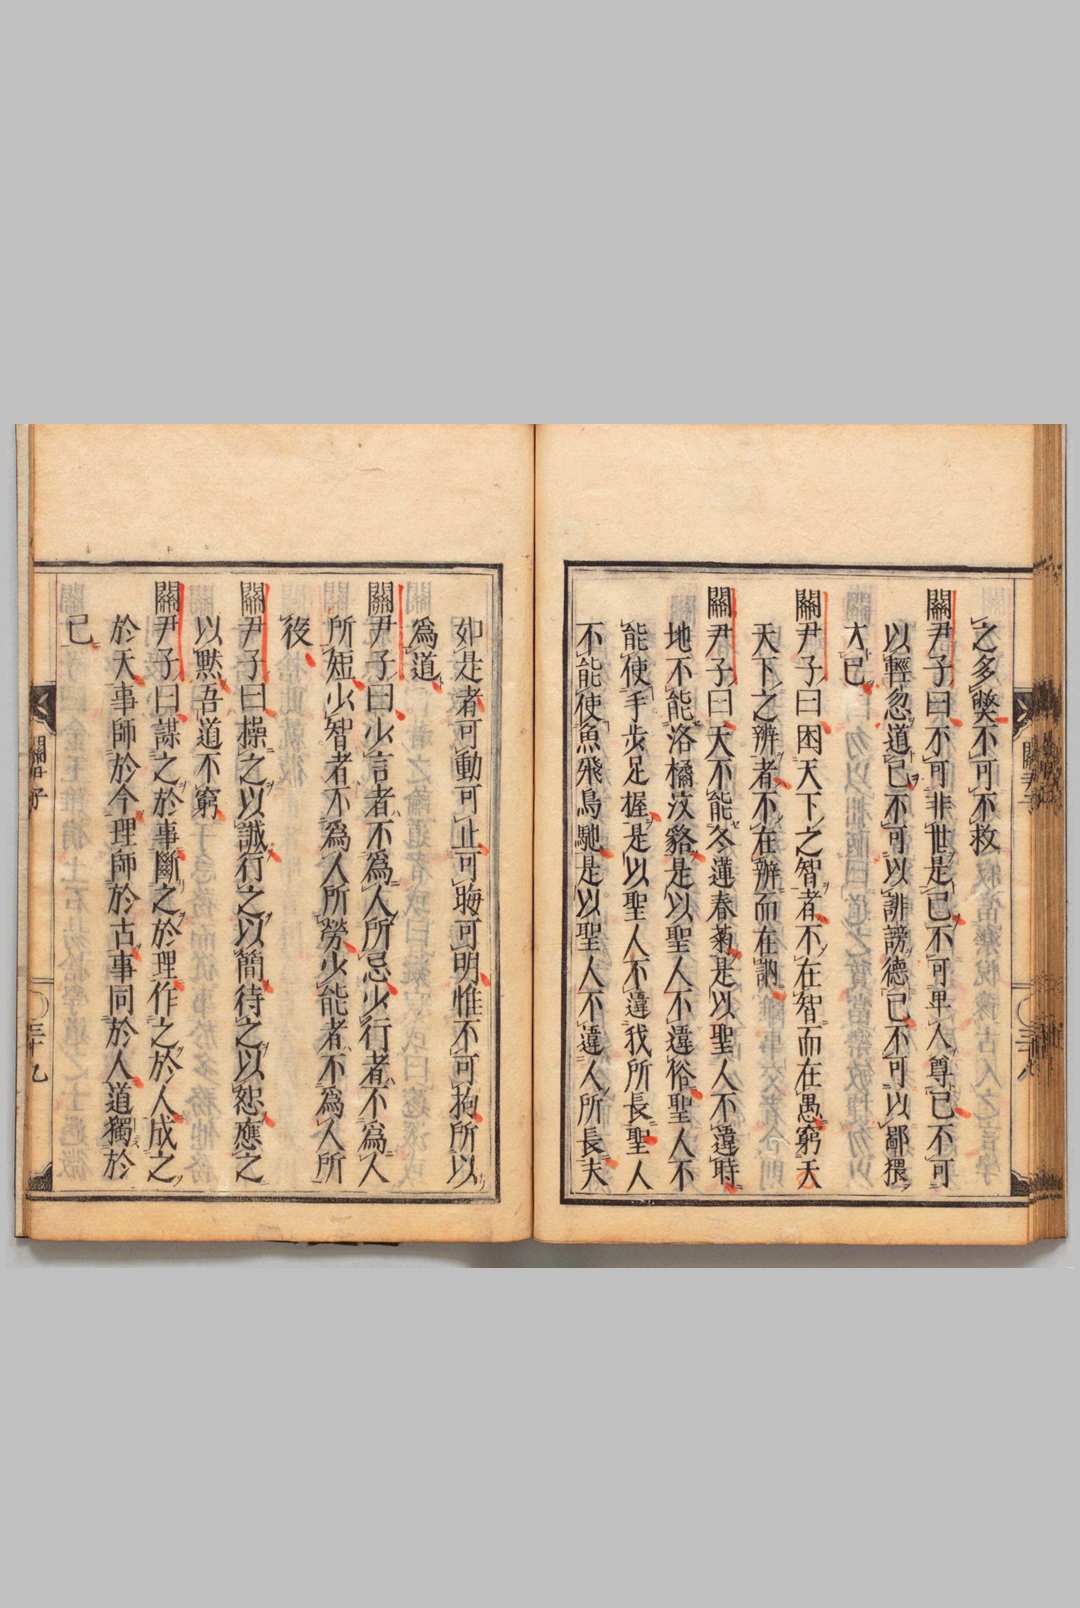 之多弊不可不救
關尹子曰不可非世是己不可卑人尊己不可
以輕忽道己不可以誹謗德己不可以鄙猥
才己
關尹子曰困天下之智者不在智而在愚窮天
天下之辨者不在辨而在訥
關尹子曰天不能冬蓮春菊是以聖人不違時
地不能洛橘汶貉是以聖人不違俗聖人不
能使手步足握是以聖人不違我所長聖人
不能使魚飛鳥馳是以聖人不違人所長夫
如是者可動可止可晦可明惟不可拘所以
爲道
關尹子曰少言者不爲人所忌少行者不爲人
所短少智者不爲人所勞少能者不爲人所
役
關尹子曰操之以誠行之以簡待之以恕應之
以黙吾道不窮
關尹子曰謀之於事斷之於理作之於人成之
於天事師於今理師於古事同於人道獨於
己
關尹子
三十九